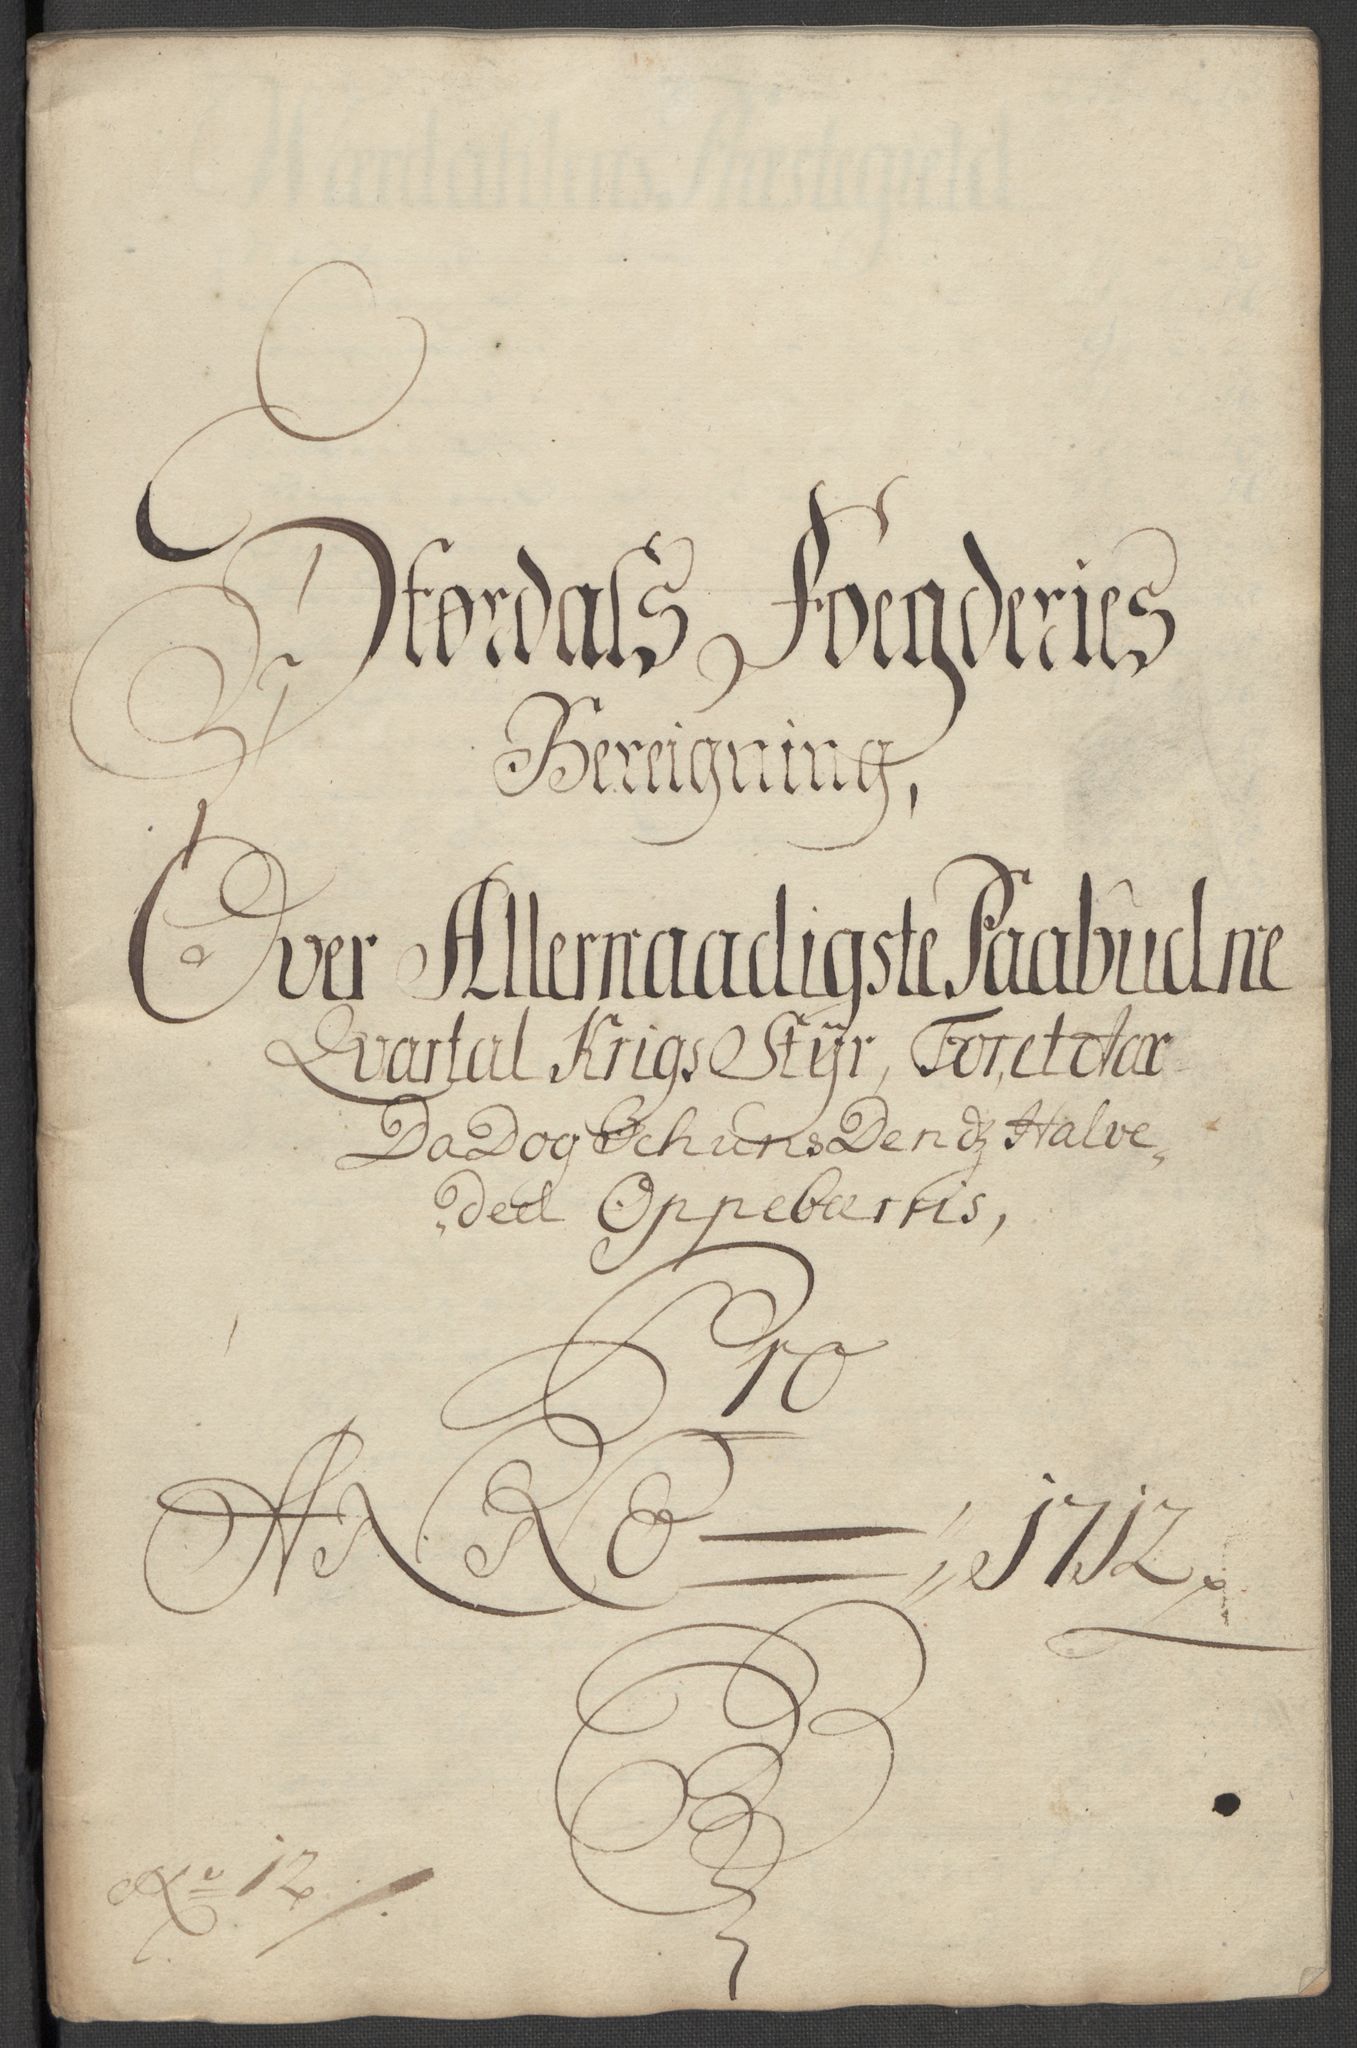 Stordals Foegderies
Bereigning,
Over Allernaadigste Paabudne
Qvartal Krigs Styr, For, et Aar
Da Dog Ichuns Den dz Halve„
„Deel Oppebærris,
Pro
ANNO = 1712
No 12